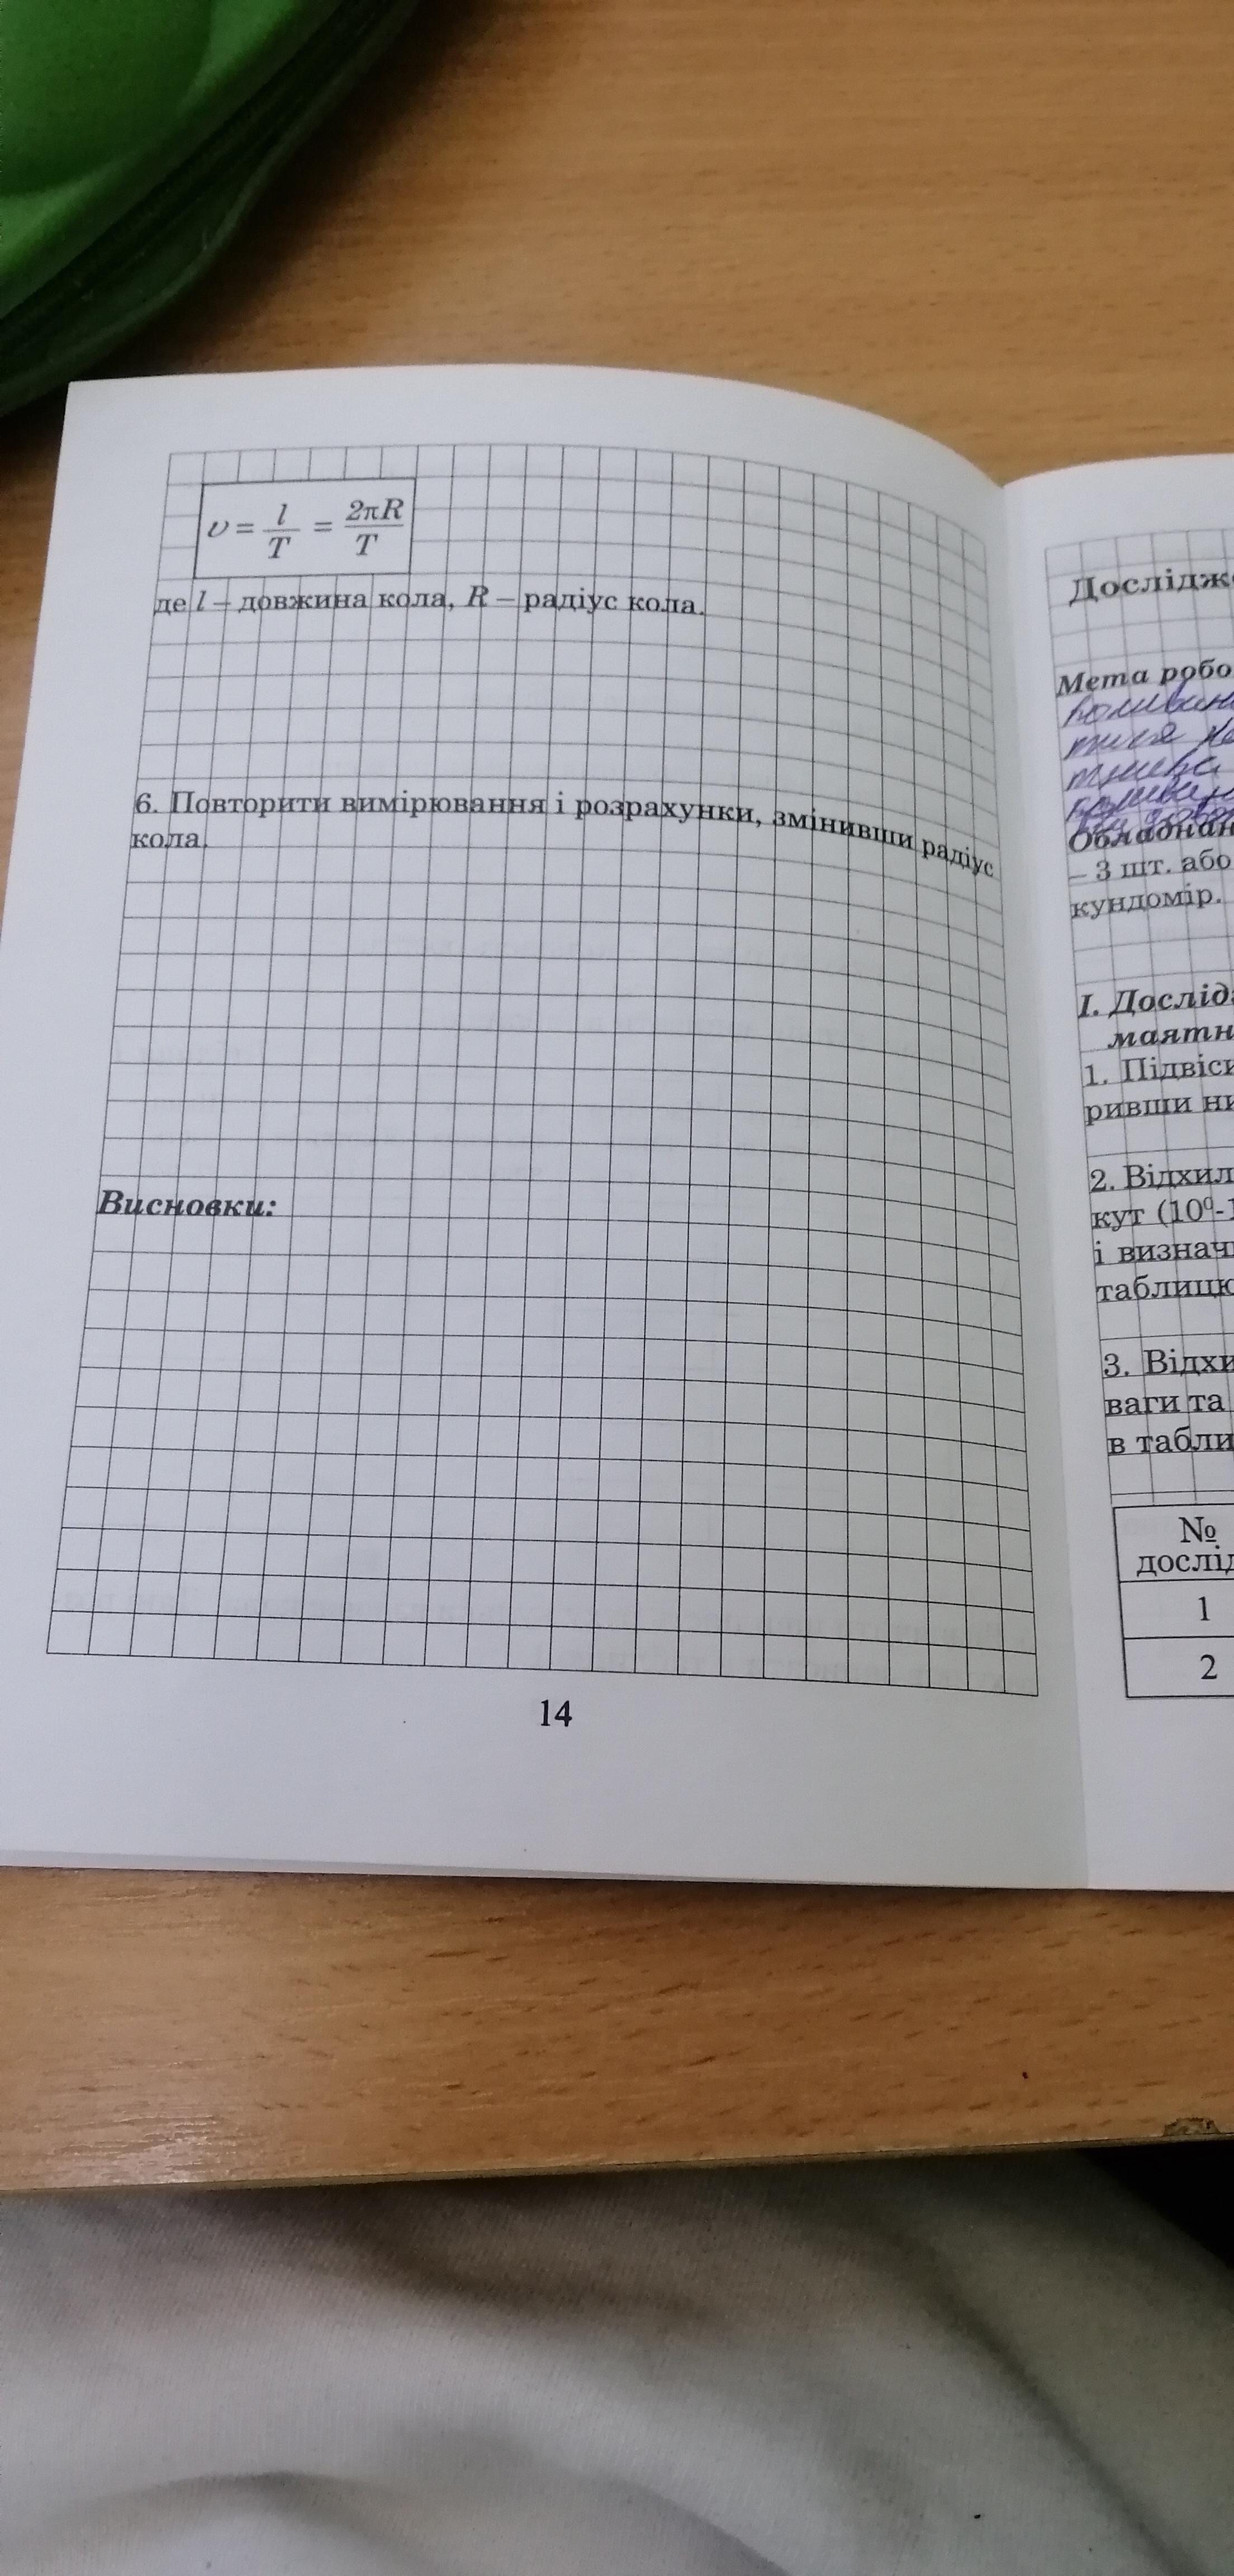 υ = l/T = 2πR/T
де l – довжина кола, R – радіус кола.
6. Повторити вимірювання і розрахунки, змінивши радіус
кола.
Висновки:
14
Дослідже
Мета робо
Обладнан
– 3 шт. або
кундомір.
I. Дослід
маятн
1. Підвіси
ривши ни
2. Відхил
кут (10⁰-1
і визнач
таблицю
3. Відхи
ваги та
в табли
№
дослід
1
2